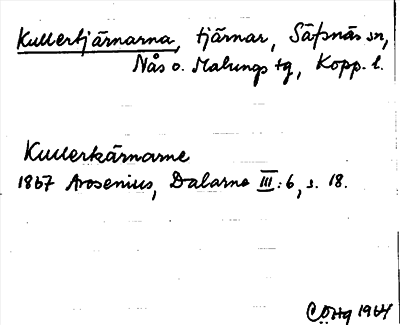 Kullertjärnarna, tjärnar, Säfsnäs sn,
Nås o. Malungs tg, Kopp. l.
Kullerkärnarne
1867 Arosenius, Dalarne III:6, s. 18.
CÖHg 1964